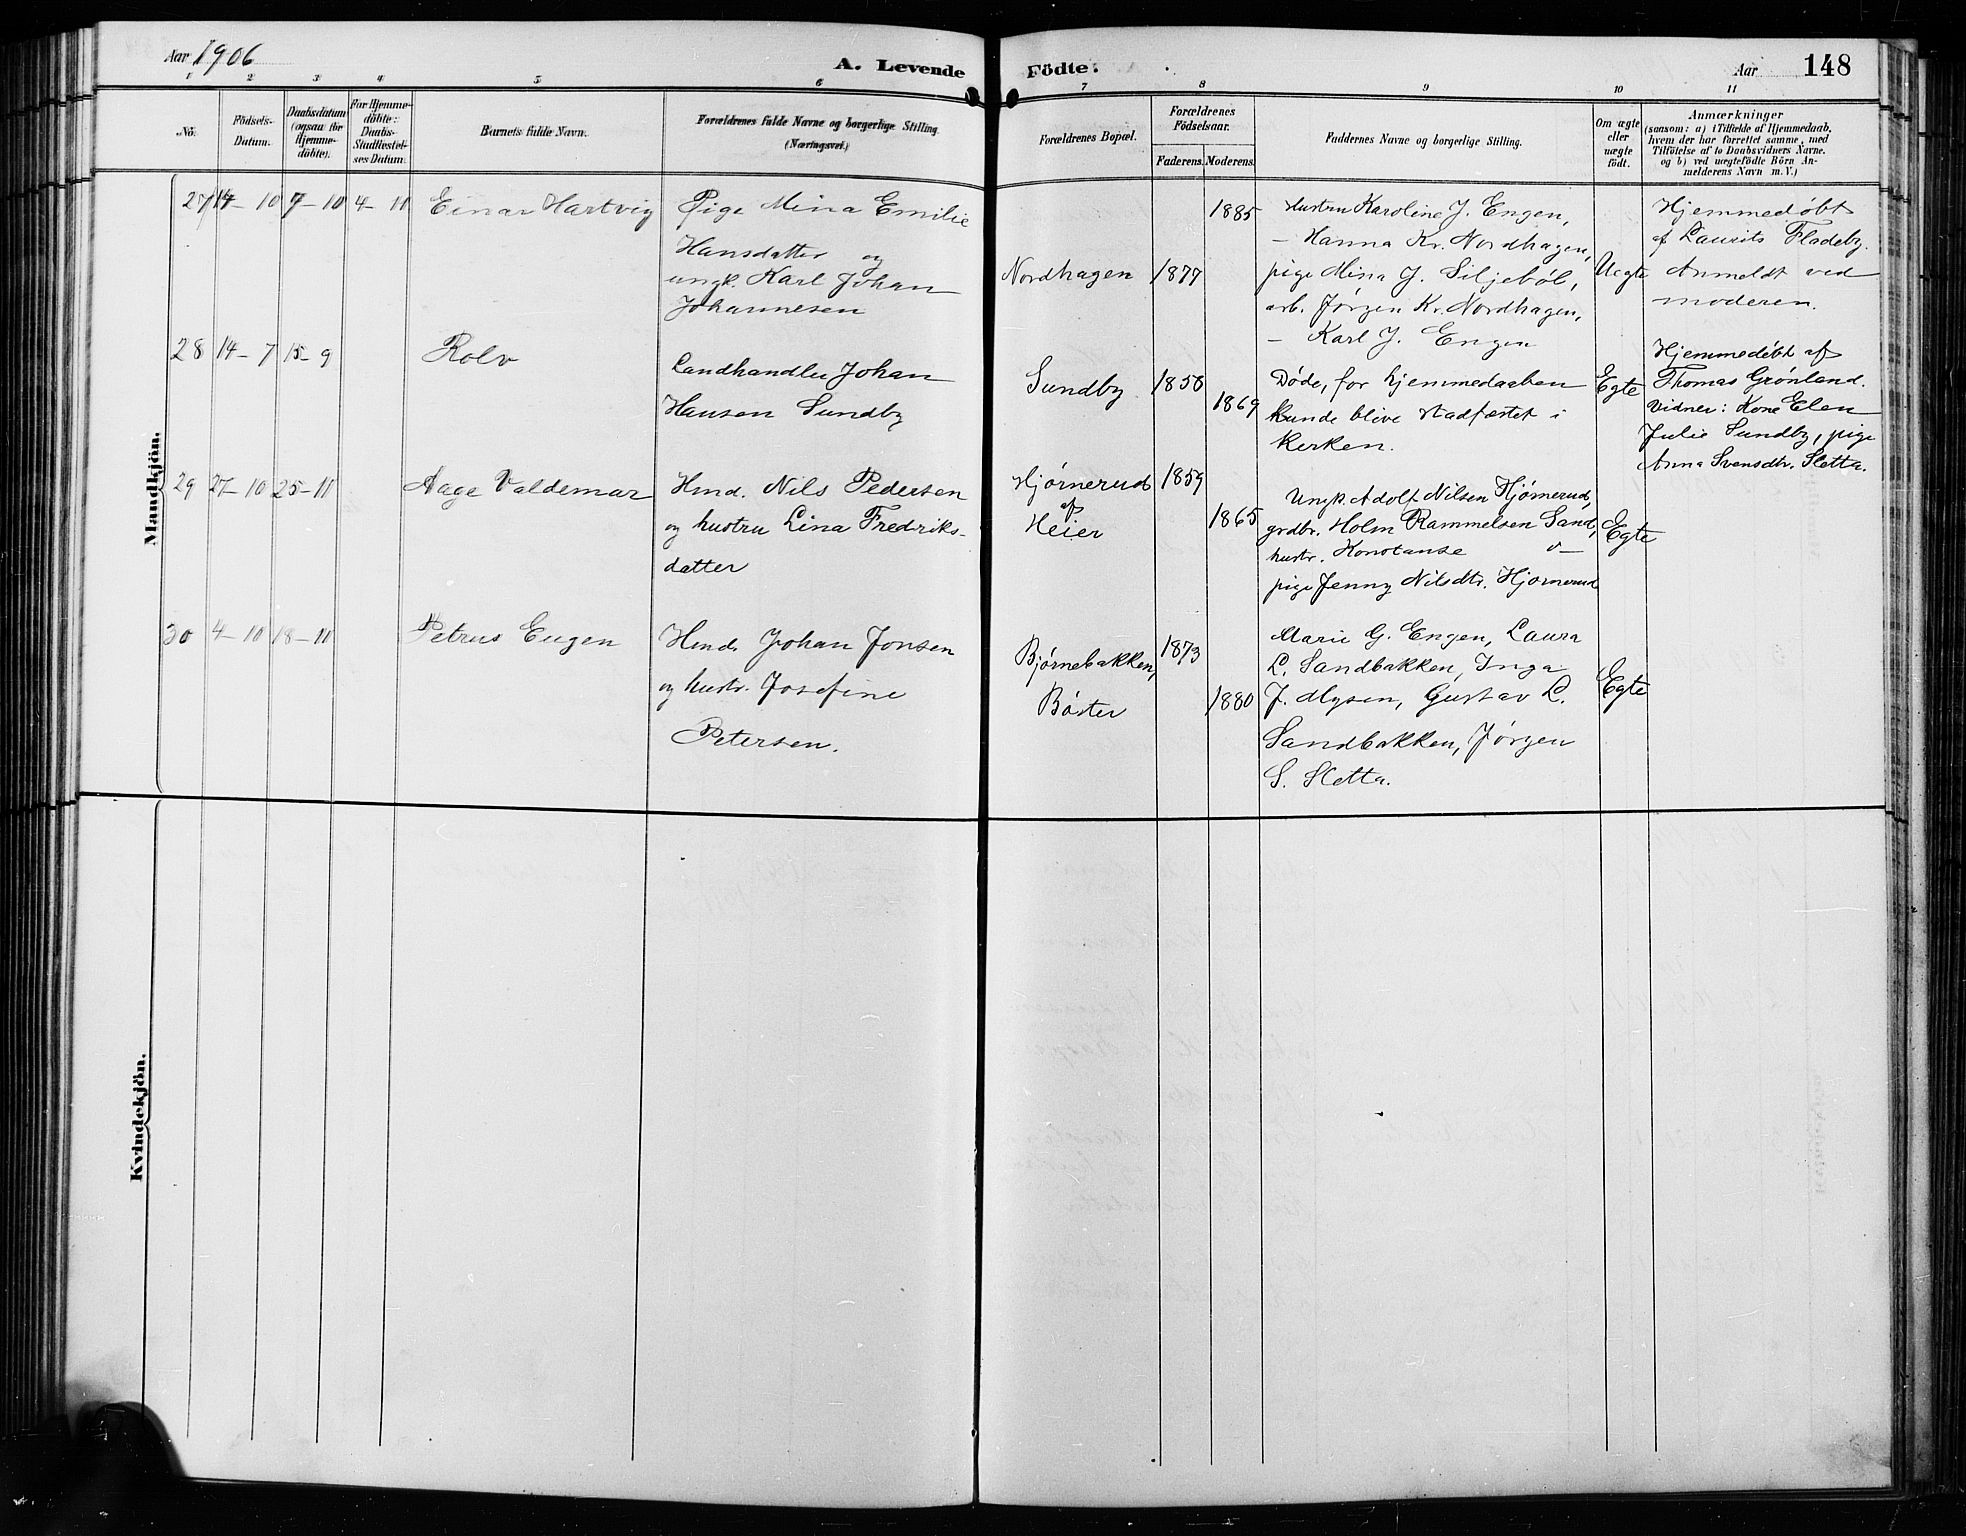 Aar 1906
A. Levende Födte.
Aar 148
1 2 3 4 5 6 7 8 9 10 11
No.
Födsels-
Datum.
Daabsdatum
(ogsaa for
Hjemme-
döbte).
For Hjemme-
döbte:
Daabs-
Stadfæstel-
ses Datum.
Barnets fulde Navn.
Forældrenes fulde Navne og borgerlige Stilling
(Næringsvei.)
Forældrenes Bopæl.
Forældrenes
Födselsaar.
Faderens. Moderens.
Faddernes Navne og borgerlige Stilling.
Om ægte
eller
uægte
födt.
Anmærkninger
(saasom: a) i Tilfælde af Hjemmedaab,
hvem der har forrettet samme, med
Tilföielse af to Daabsvidners Navne.
og b) ved uægtefödte Börn An-
melderens Navn m. V.)
Mandkjön.
27 14-10 7-10 4-11 Einar Hartvig
Pige Mina Emilie
Hansdatter og
ungk. Karl Johan
Johannesen
Nordhagen 1877 1885
Hustru Karoline J. Engen,
— Hanna Kr. Nordhagen,
pige Mina J. Siljeböl,
arb. Jørgen Kr. Nordhagen,
— Karl J. Engen
Uegte
Hjemmedøbt
af Laurits Fladeby.
Anmeldt ved
moderen.
28 14-7 15-9 Rolv
Landhandler Johan
Hansen Sundby
Sundby 1858 1869
Døde, før hjemmedaaben
kunde blive stadfæstet i
kerken.
Egte
Hjemmedöbt af
Thomas Grönland.
Vidner: Kone Elen
Julie Sundby, pige
Anna Svensdtr. Sletta.
29 27-10 25-11 Aage Valdemar
Hmd. Nils Pedersen
og hustru Lina Fredriks-
datter
Hjørnerud
af
Heier
1859 1865
Ungk. Adolf Nilsen Hjørnerud,
grdbr. Holm Rammelsen Sand,
hustr. Konstanse —
pige Jenny Nilsdtr. Hjørnerud
Egte
30 4-10 18-11 Petrus Eugen
Hmd. Johan Jonsen
og hustr. Josefine
Petersen.
Bjørnebakken,
Böster
1873 1880
Marie G. Engen, Laura
L. Sandbakken, Inga
J. Mysen, Gustav L.
Sandbakken, Jørgen
S. Sletta.
Egte
Kvindekjön.